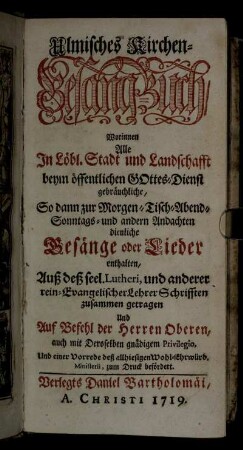 Ulmisches Kirchen-
Gesang-Buch/
Worinnen
Alle
In Löbl. Stadt und Landschafft
beym öffentlichen GOttes-Dienst
gebräuchliche,
So dann zur Morgen-Tisch-Abend-
Sonntags- und andern Andachten
dienliche
Gesänge oder Lieder
enthalten,
Auß deß seel. Lutheri, und anderer
rein-Evangelischer Lehrer Schrifften
zusammen getragen
Und
Auf Befehl der Herren Oberen,
auch mit Deroselben gnädigem Privilegio,
Und einer Vorrede deß allhiesigen Wohl-Ehrwürd.
Ministerii, zum Druck befördert.
Verlegts Daniel Bartholomäi,
A. CHRISTI 1719.